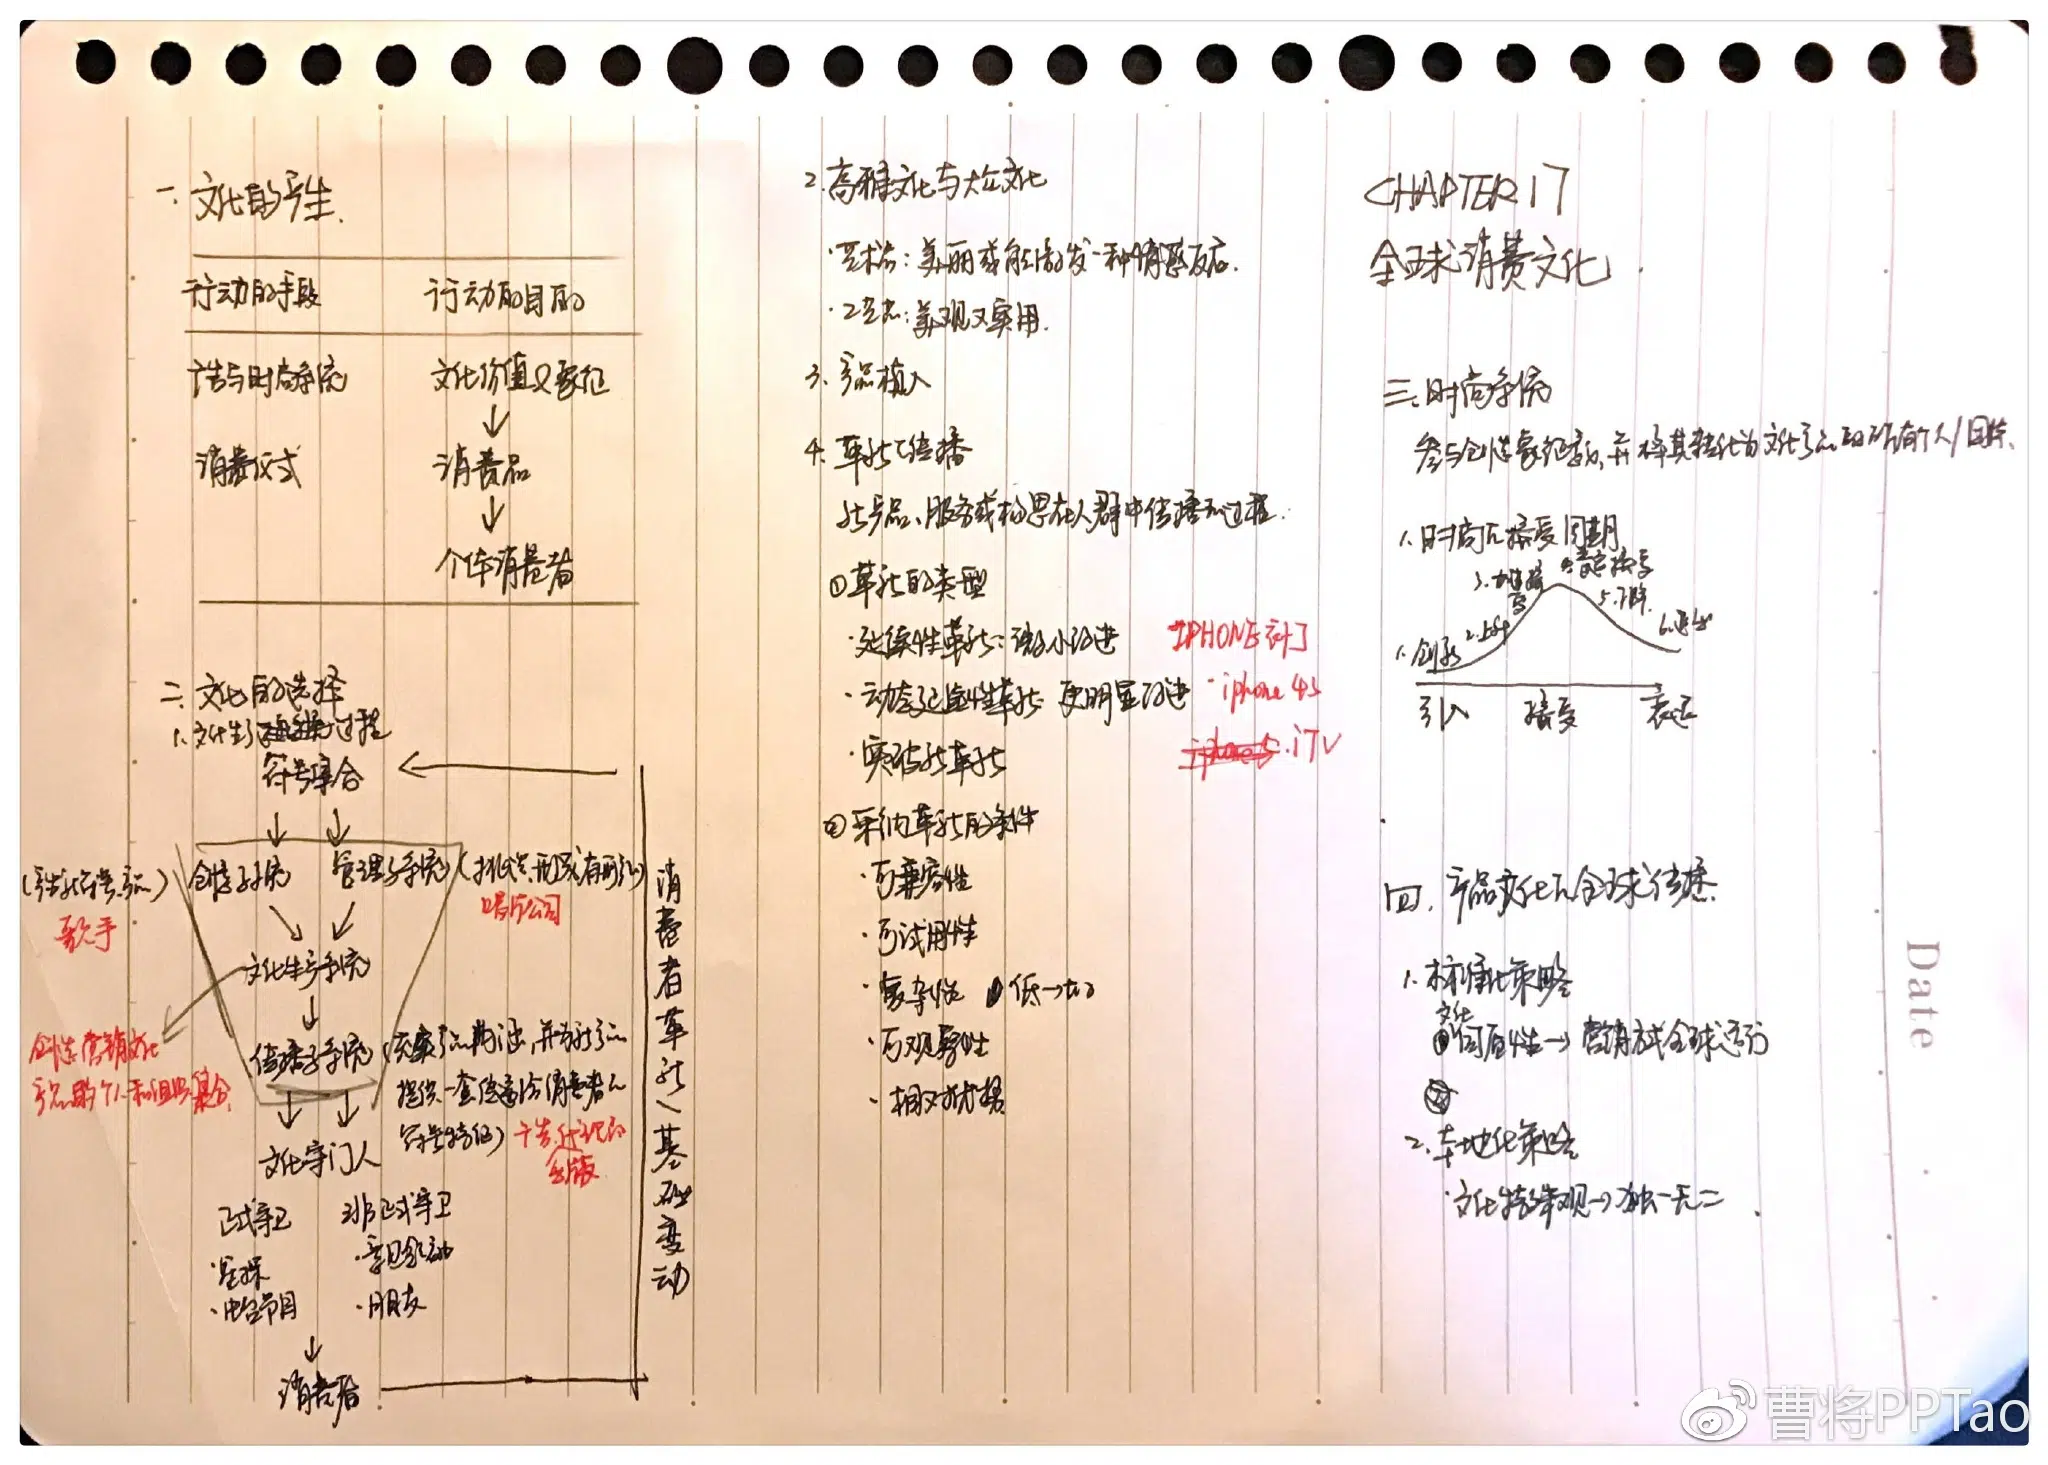 一.文化的产生.
行动的手段 行动的目的
广告与时尚系统 文化价值及象征
消费仪式 消费品
个体消费者
二.文化的选择
1.文化生产过程
符号集合
(产生新符号.产品) 创造子系统 管理子系统
歌手 唱片公司
文化生产系统
创造营销文化
产品的个人和组织集合
传播子系统
提供一套传递给消费者的
符号特征) 广告代理
文化守门人
正式守卫 非正式守卫
·星探 ·亲日影响
·电台节目 ·朋友
消费者
消费者革新/基础变动
2.高雅文化与大众文化
·艺术品:美丽或能激发一种情感反应.
·工艺品:美观又实用.
3.产品植入
4.革新传播
新产品、服务或构思在人群中传播的过程.
①革新的类型
·延续性革新:微小改进 IPHONE
·动态延续性革新 更明显改进 ·iphone 4s
·突破新革新 iphone5.iTV
②采纳革新的条件
·可兼容性
·可试用性
·复杂性 低→
·可观察性
·相对优势
CHAPTER 17
全球消费文化.
三.时尚系统
参与创造象征意义,并将其转化为文化产品的所有个人/团体.
1.时尚的接受周期
1.创新 2.上升 3.加速接受 4.普遍接受 5.下降 6.退出
引入 接受 衰退
四.产品文化的全球传播.
1.标准化策略
文化同质性→营销方式全球通行
2.本地化策略
·文化特殊观→独一无二.
Date
曹将PPTao